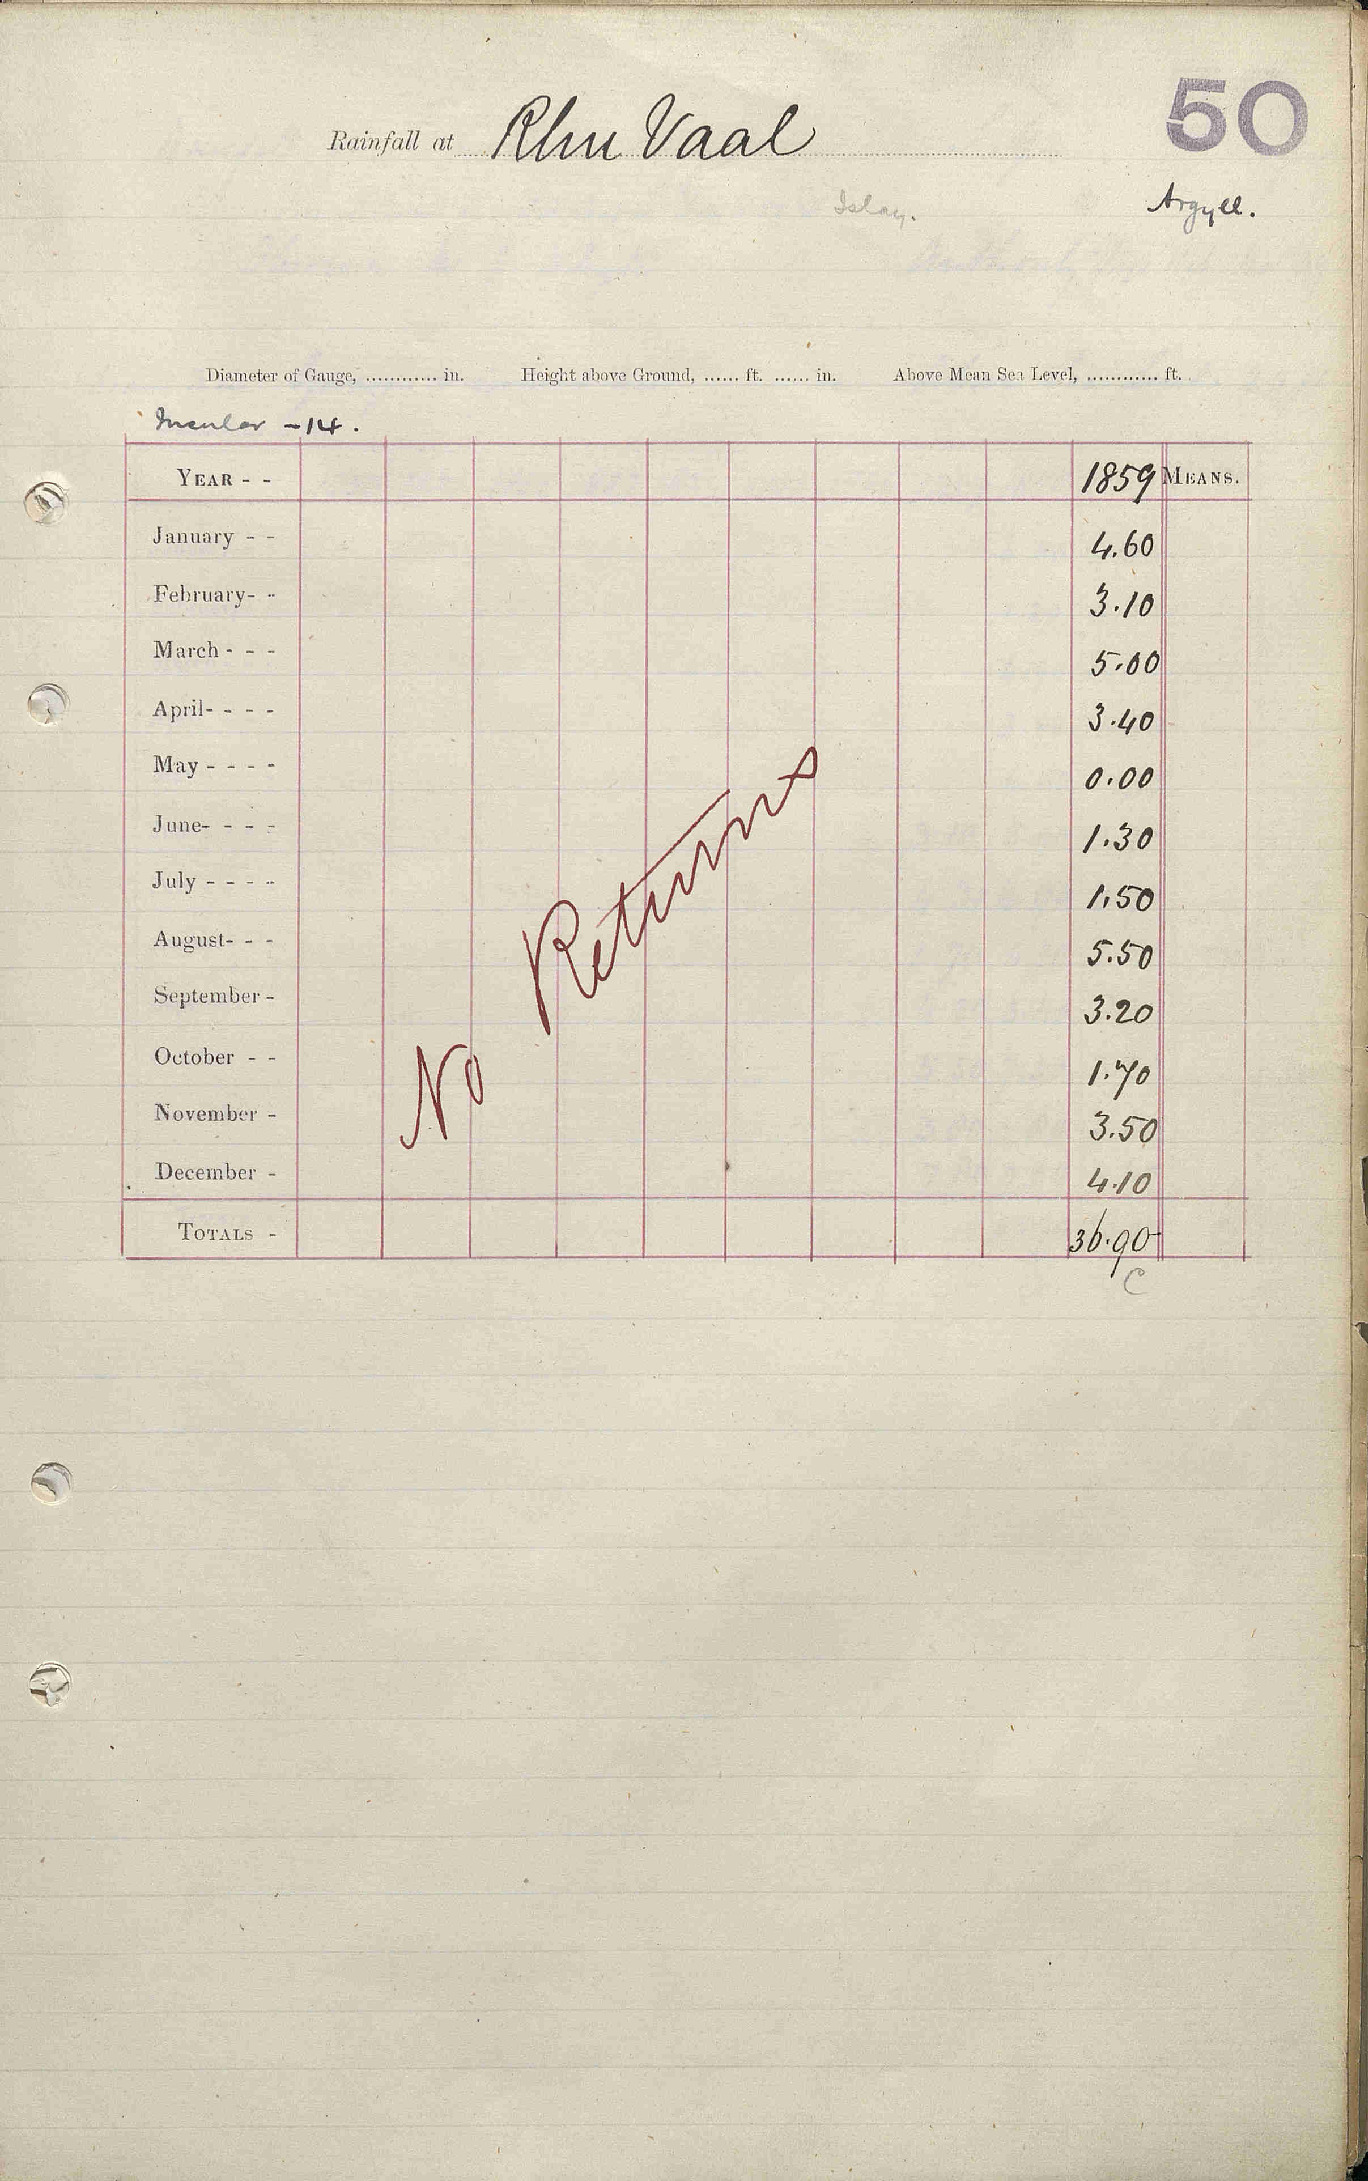 50
Rainfall at Rhu Vaal
Islay. Argyll.
Diameter of Gauge, ............ in. Height above Ground, ...... ft. ...... in. Above Mean Sea Level, ............ ft.
Insular - 14.
YEAR - - 1859 MEANS.
January - - 4.60
February- - 3.10
March - - - 5.00
April- - - - 3.40
May - - - - 0.00
June- - - - 1.30
July - - - - 1.50
August- - - 5.50
September - 3.20
October - - 1.70
November - 3.50
December - 4.10
TOTALS - 36.90
C
No Returns